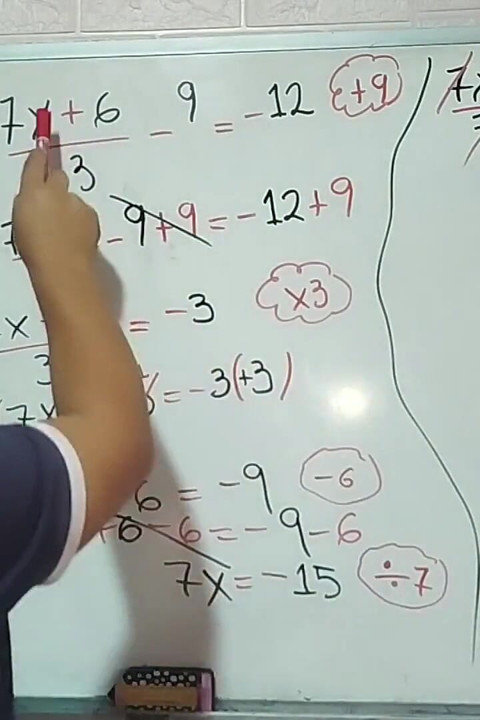 7x + 6 / 3 - 9 = -12 +9
- 9 + 9 = -12 + 9
x = -3 x3
3
7x = -3(+3)
6 = -9 -6
6 - 6 = -9 - 6
7x = -15 ÷7